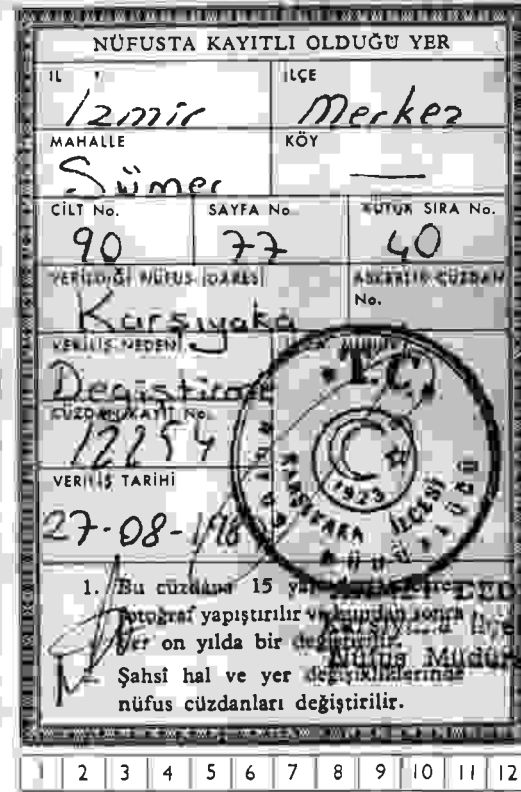 NÜFUSTA KAYITLI OLDUĞU YER
İL İLÇE
İzmir Merkez
MAHALLE KÖY
Sümer —
CİLT No. SAYFA No. KÜTÜK SIRA No.
90 77 40
VERİLDİĞİ NÜFUS İDARESİ ASKERLİK CÜZDAN
No.
Karşıyaka
VERİLİŞ NEDENİ
Değiştirme
CÜZDAN KAYIT No.
12254
VERİLİŞ TARİHİ
27-08-
T.C.
1923
KARŞIYAKA İLÇESİ
1. Bu cüzdana 15
fotoğraf yapıştırılır sonra
her on yılda bir değiştirilir.
Şahsî hal ve yer değişikliklerinde
nüfus cüzdanları değiştirilir.
Nüfus Müdür
1 2 3 4 5 6 7 8 9 10 11 12